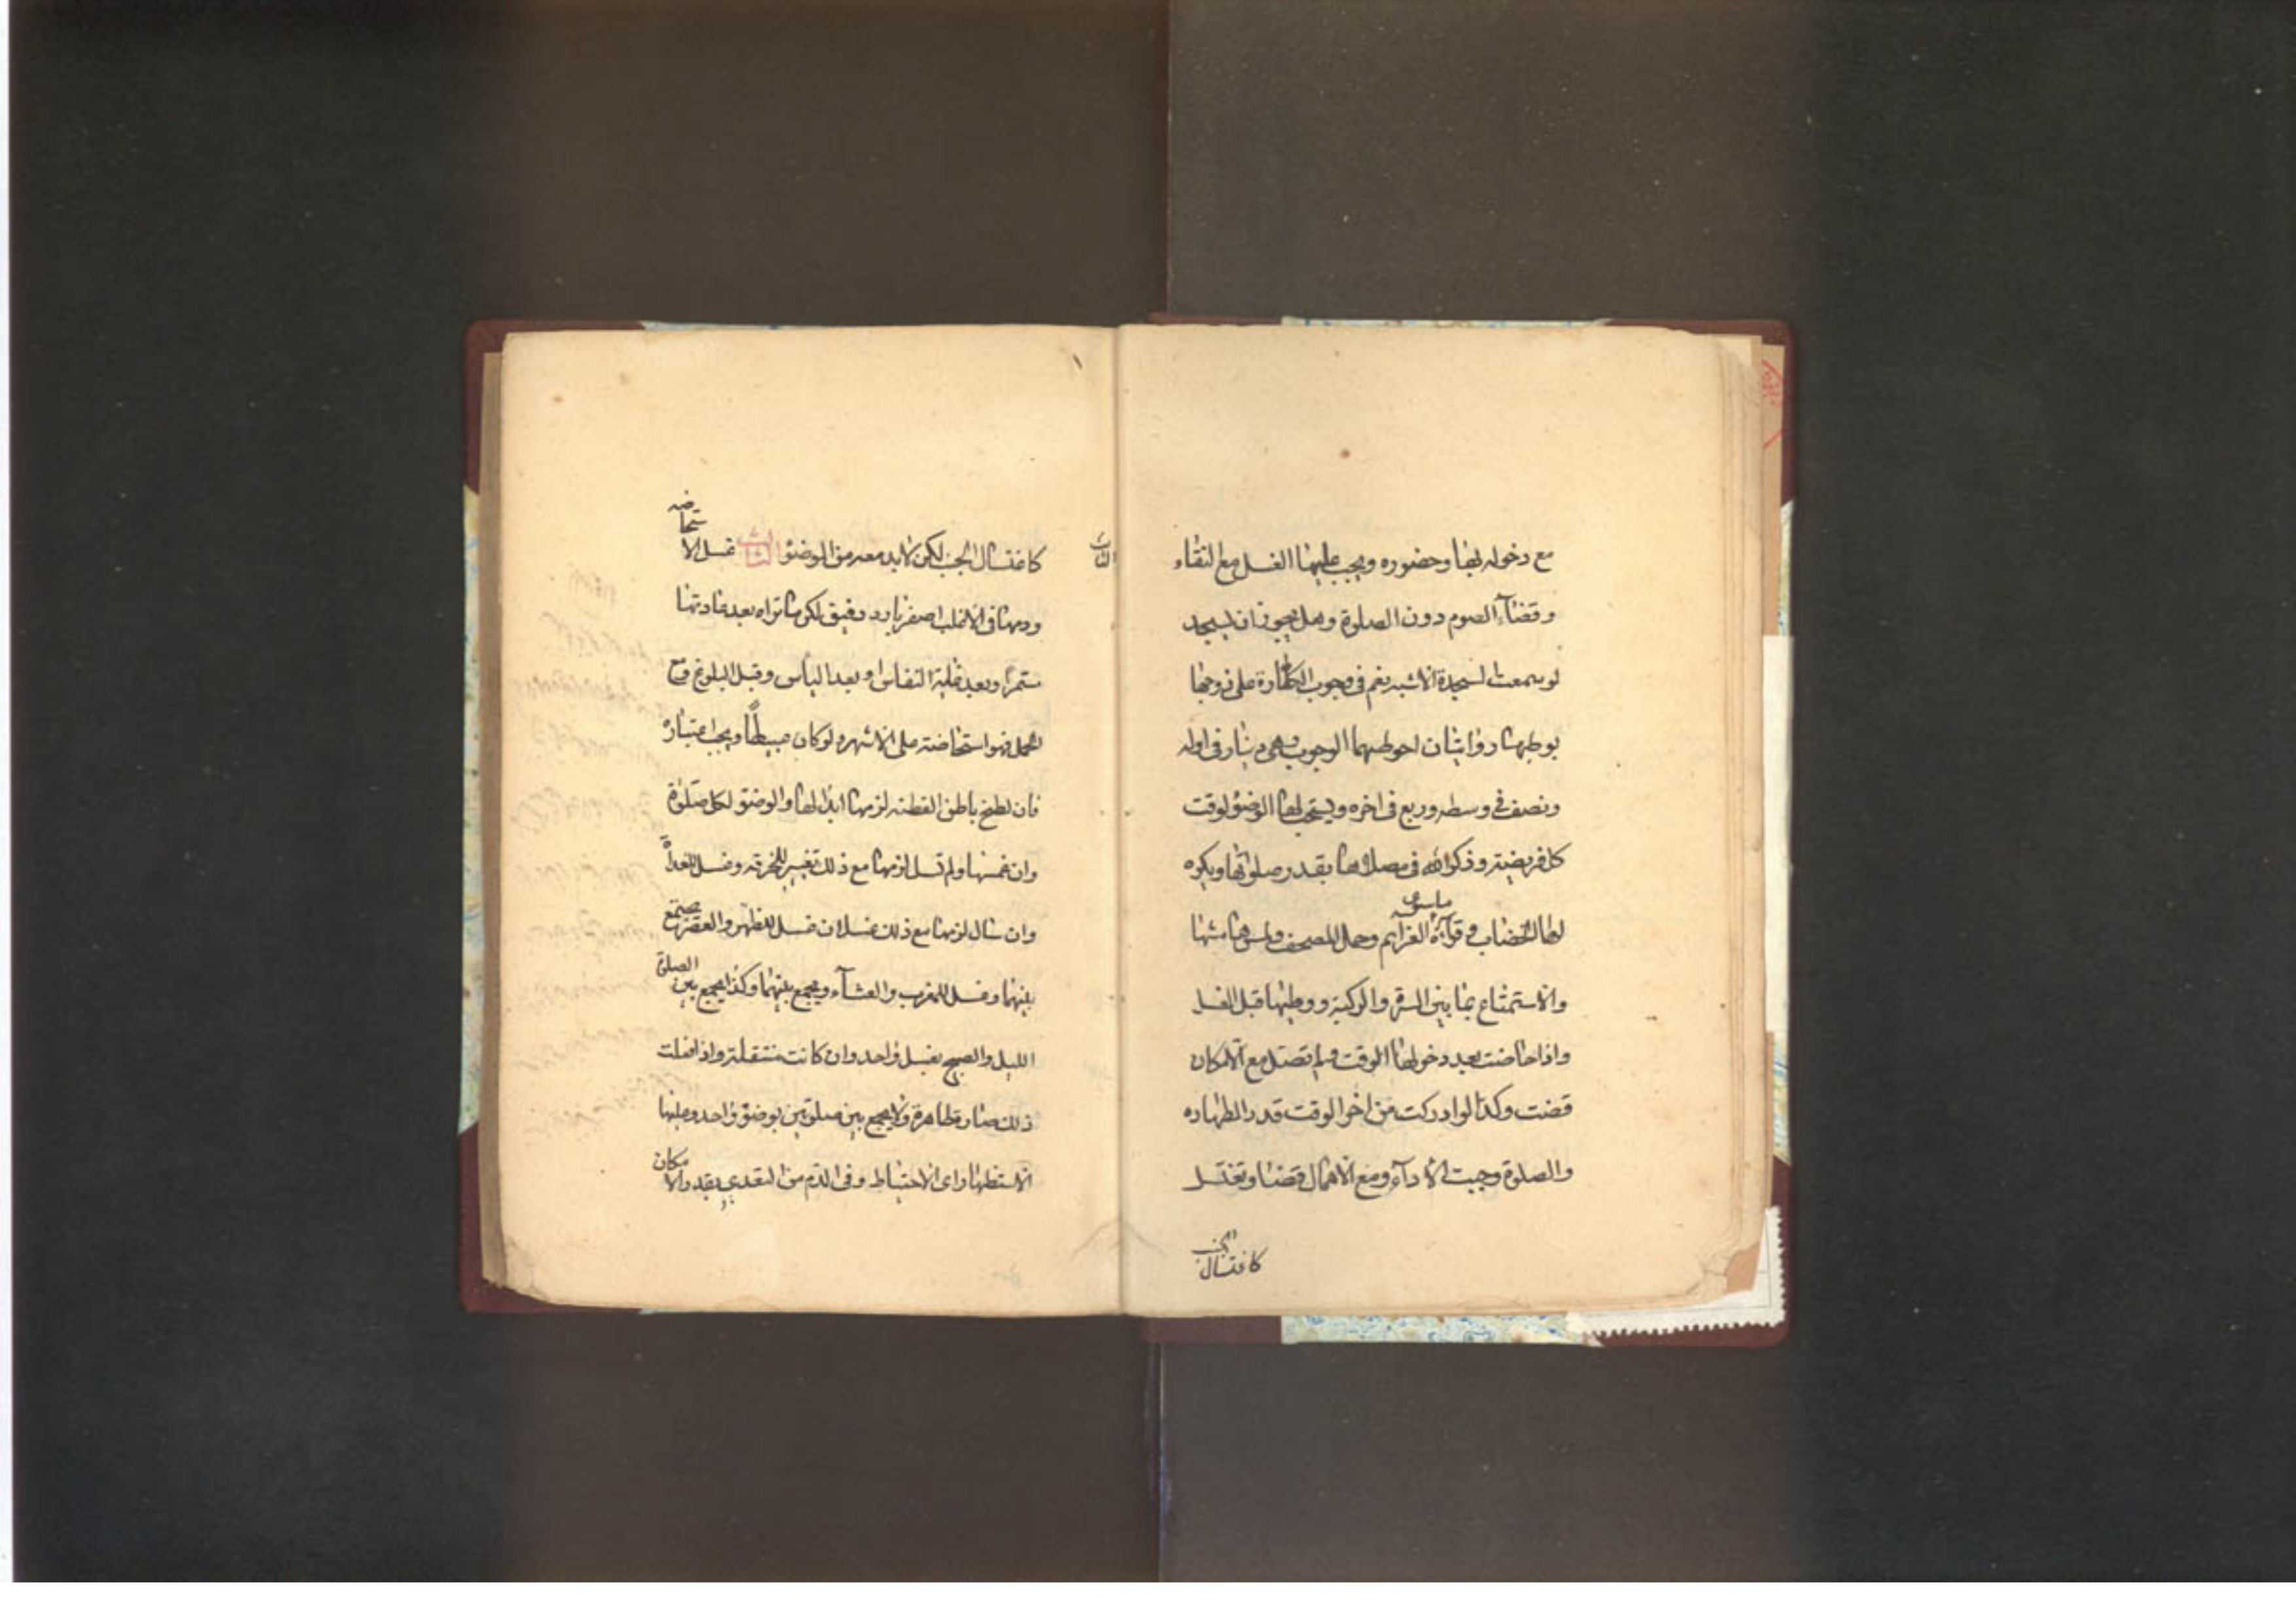 مع دخوله بها وحضوره ويجب عليها الغسل مع النقاء
وقضاء الصوم دون الصلوة وهل يجوز ان يسجد
لو سمعت السجدة الاشبه نعم فى وجوب الكفارة على زوجها
بوطيها روايتان احوطهما الوجوب وهى دينار فى اوله
ونصف فى وسطه وربع فى اخره ويستحب لها الوضوء لوقت
كل فريضة وذكر الله فى مصلاها بقدر صلوتها ويكره
ماسوى
لها الخضاب و قراءة العزايم وحمل المصحف ولمس هامشها
والاستمتاع بما بين السرة والركبة ووطيها قبل الغسل
واذا حاضت بعد دخولها الوقت ولم تصل مع الامكان
قضت وكذا لو ادركت من اخر الوقت قدر الطهاره
والصلوة وجبت الاداء ومع الاهمال قضا وتغتسل
كاغتسال الجنب
الثالث
كاغتسال الجنب لكن لابد معه من الوضوء الثالث غسل الاستحاضه
ودمها فى الاغلب اصفر بارد رقيق لكن ما تراه بعد عادتها
مستمرا وبعد غاية النفاس او بعد الياس وقبل البلوغ ومع
الحمل فهو استحاضة على الاشهر ولو كان عبيطا ويجب اعتباره
فان لطخ باطن القطنه لزمها ابدالها والوضوء لكل صلوة
وان غمسها ولم تسل لزمها مع ذلك تغيير الخرقه وغسل للغداة
وان سال لزمها مع ذلك غسلان غسل للظهر والعصر تجمع
بينهما وغسل للمغرب والعشاء وتجمع بينهما وكذا يجمع بين الصلوة
الليل والصبح بغسل واحد وان كانت متنفلة واذا فعلت
ذلك صارت طاهرة ولا يجمع بين صلوتين بوضوء واحد وعليها
الاستظهار اى الاحتياط وفى الدم من التعدى بقدر الامكان